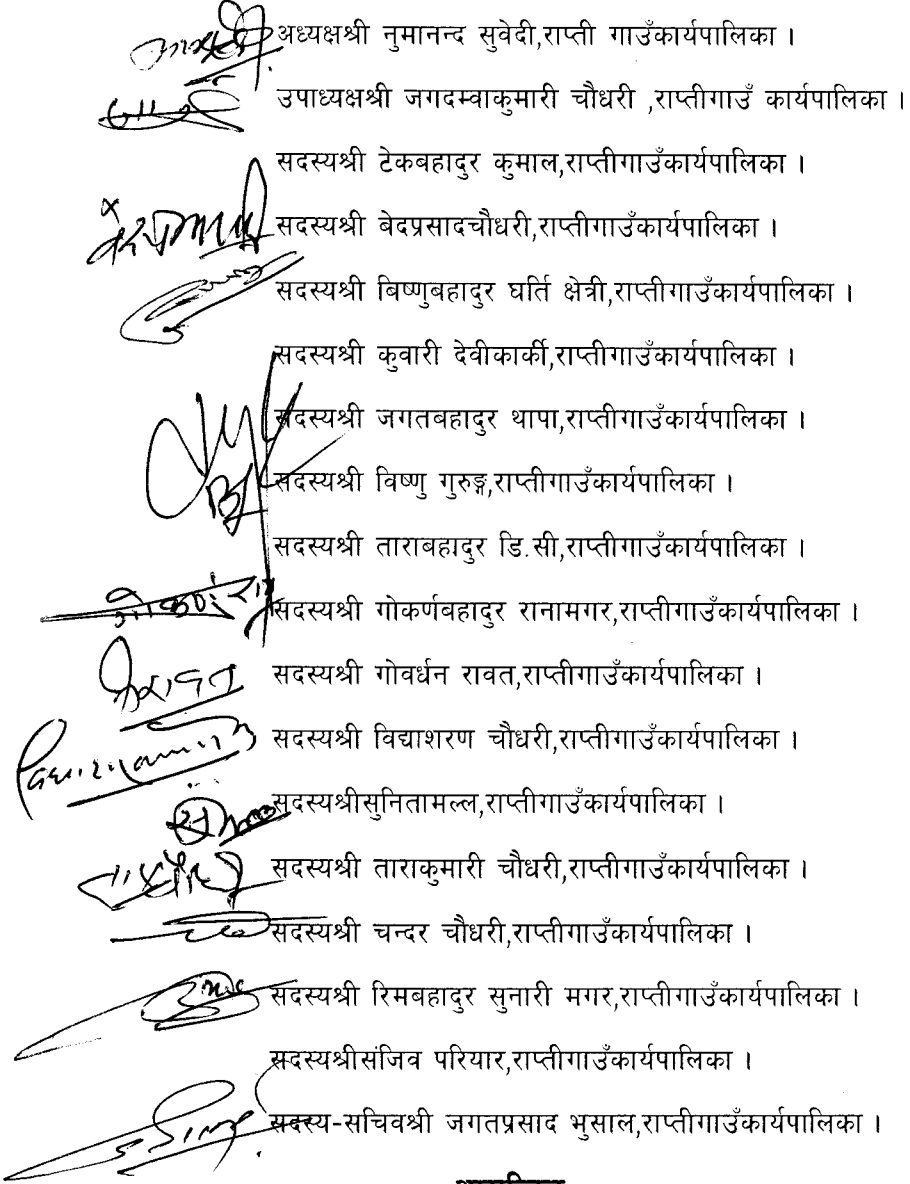 अध्यक्षश्री नुमानन्द सुवेदी,राप्ती गाउँकार्यपालिका ।
उपाध्यक्षश्री जगदम्वाकुमारी चौधरी ,राप्तीगाउँ कार्यपालिका ।
सदस्यश्री टेकबहादुर कुमाल,राप्तीगाउँकार्यपालिका ।
सदस्यश्री बेदप्रसादचौधरी,राप्तीगाउँकार्यपालिका ।
सदस्यश्री बिष्णुबहादुर घर्ति क्षेत्री,राप्तीगाउँकार्यपालिका ।
सदस्यश्री कुवारी देवीकार्की,राप्तीगाउँकार्यपालिका ।
सदस्यश्री जगतबहादुर थापा,राप्तीगाउँकार्यपालिका ।
सदस्यश्री विष्णु गुरुङ्ग,राप्तीगाउँकार्यपालिका ।
सदस्यश्री ताराबहादुर डि.सी,राप्तीगाउँकार्यपालिका ।
सदस्यश्री गोकर्णबहादुर रानामगर,राप्तीगाउँकार्यपालिका ।
सदस्यश्री गोवर्धन रावत,राप्तीगाउँकार्यपालिका ।
सदस्यश्री विद्याशरण चौधरी,राप्तीगाउँकार्यपालिका ।
सदस्यश्रीसुनितामल्ल,राप्तीगाउँकार्यपालिका ।
सदस्यश्री ताराकुमारी चौधरी,राप्तीगाउँकार्यपालिका ।
सदस्यश्री चन्दर चौधरी,राप्तीगाउँकार्यपालिका ।
सदस्यश्री रिमबहादुर सुनारी मगर,राप्तीगाउँकार्यपालिका ।
सदस्यश्रीसंजिव परियार,राप्तीगाउँकार्यपालिका ।
सदस्य-सचिवश्री जगतप्रसाद भुसाल,राप्तीगाउँकार्यपालिका ।